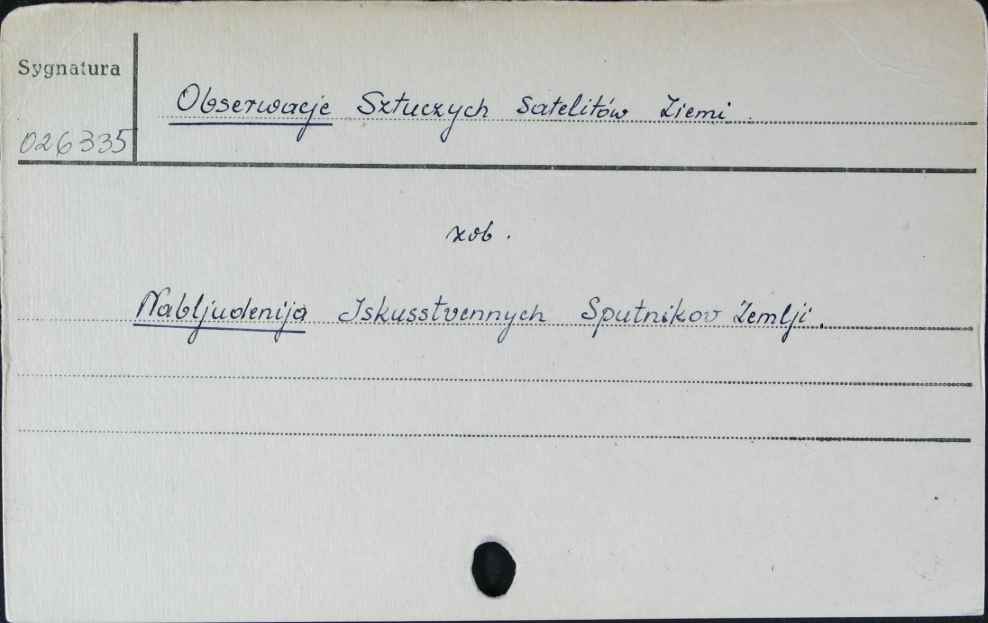 Sygnatura
Obserwacje Sztuczych Satelitów Ziemi
026335
zob.
Nabljudenija Iskusstvennych Sputnikov Zemlji.